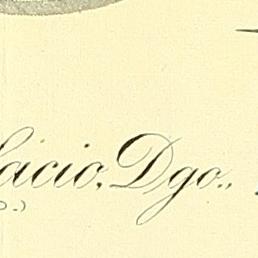 lacio, Dgo.,